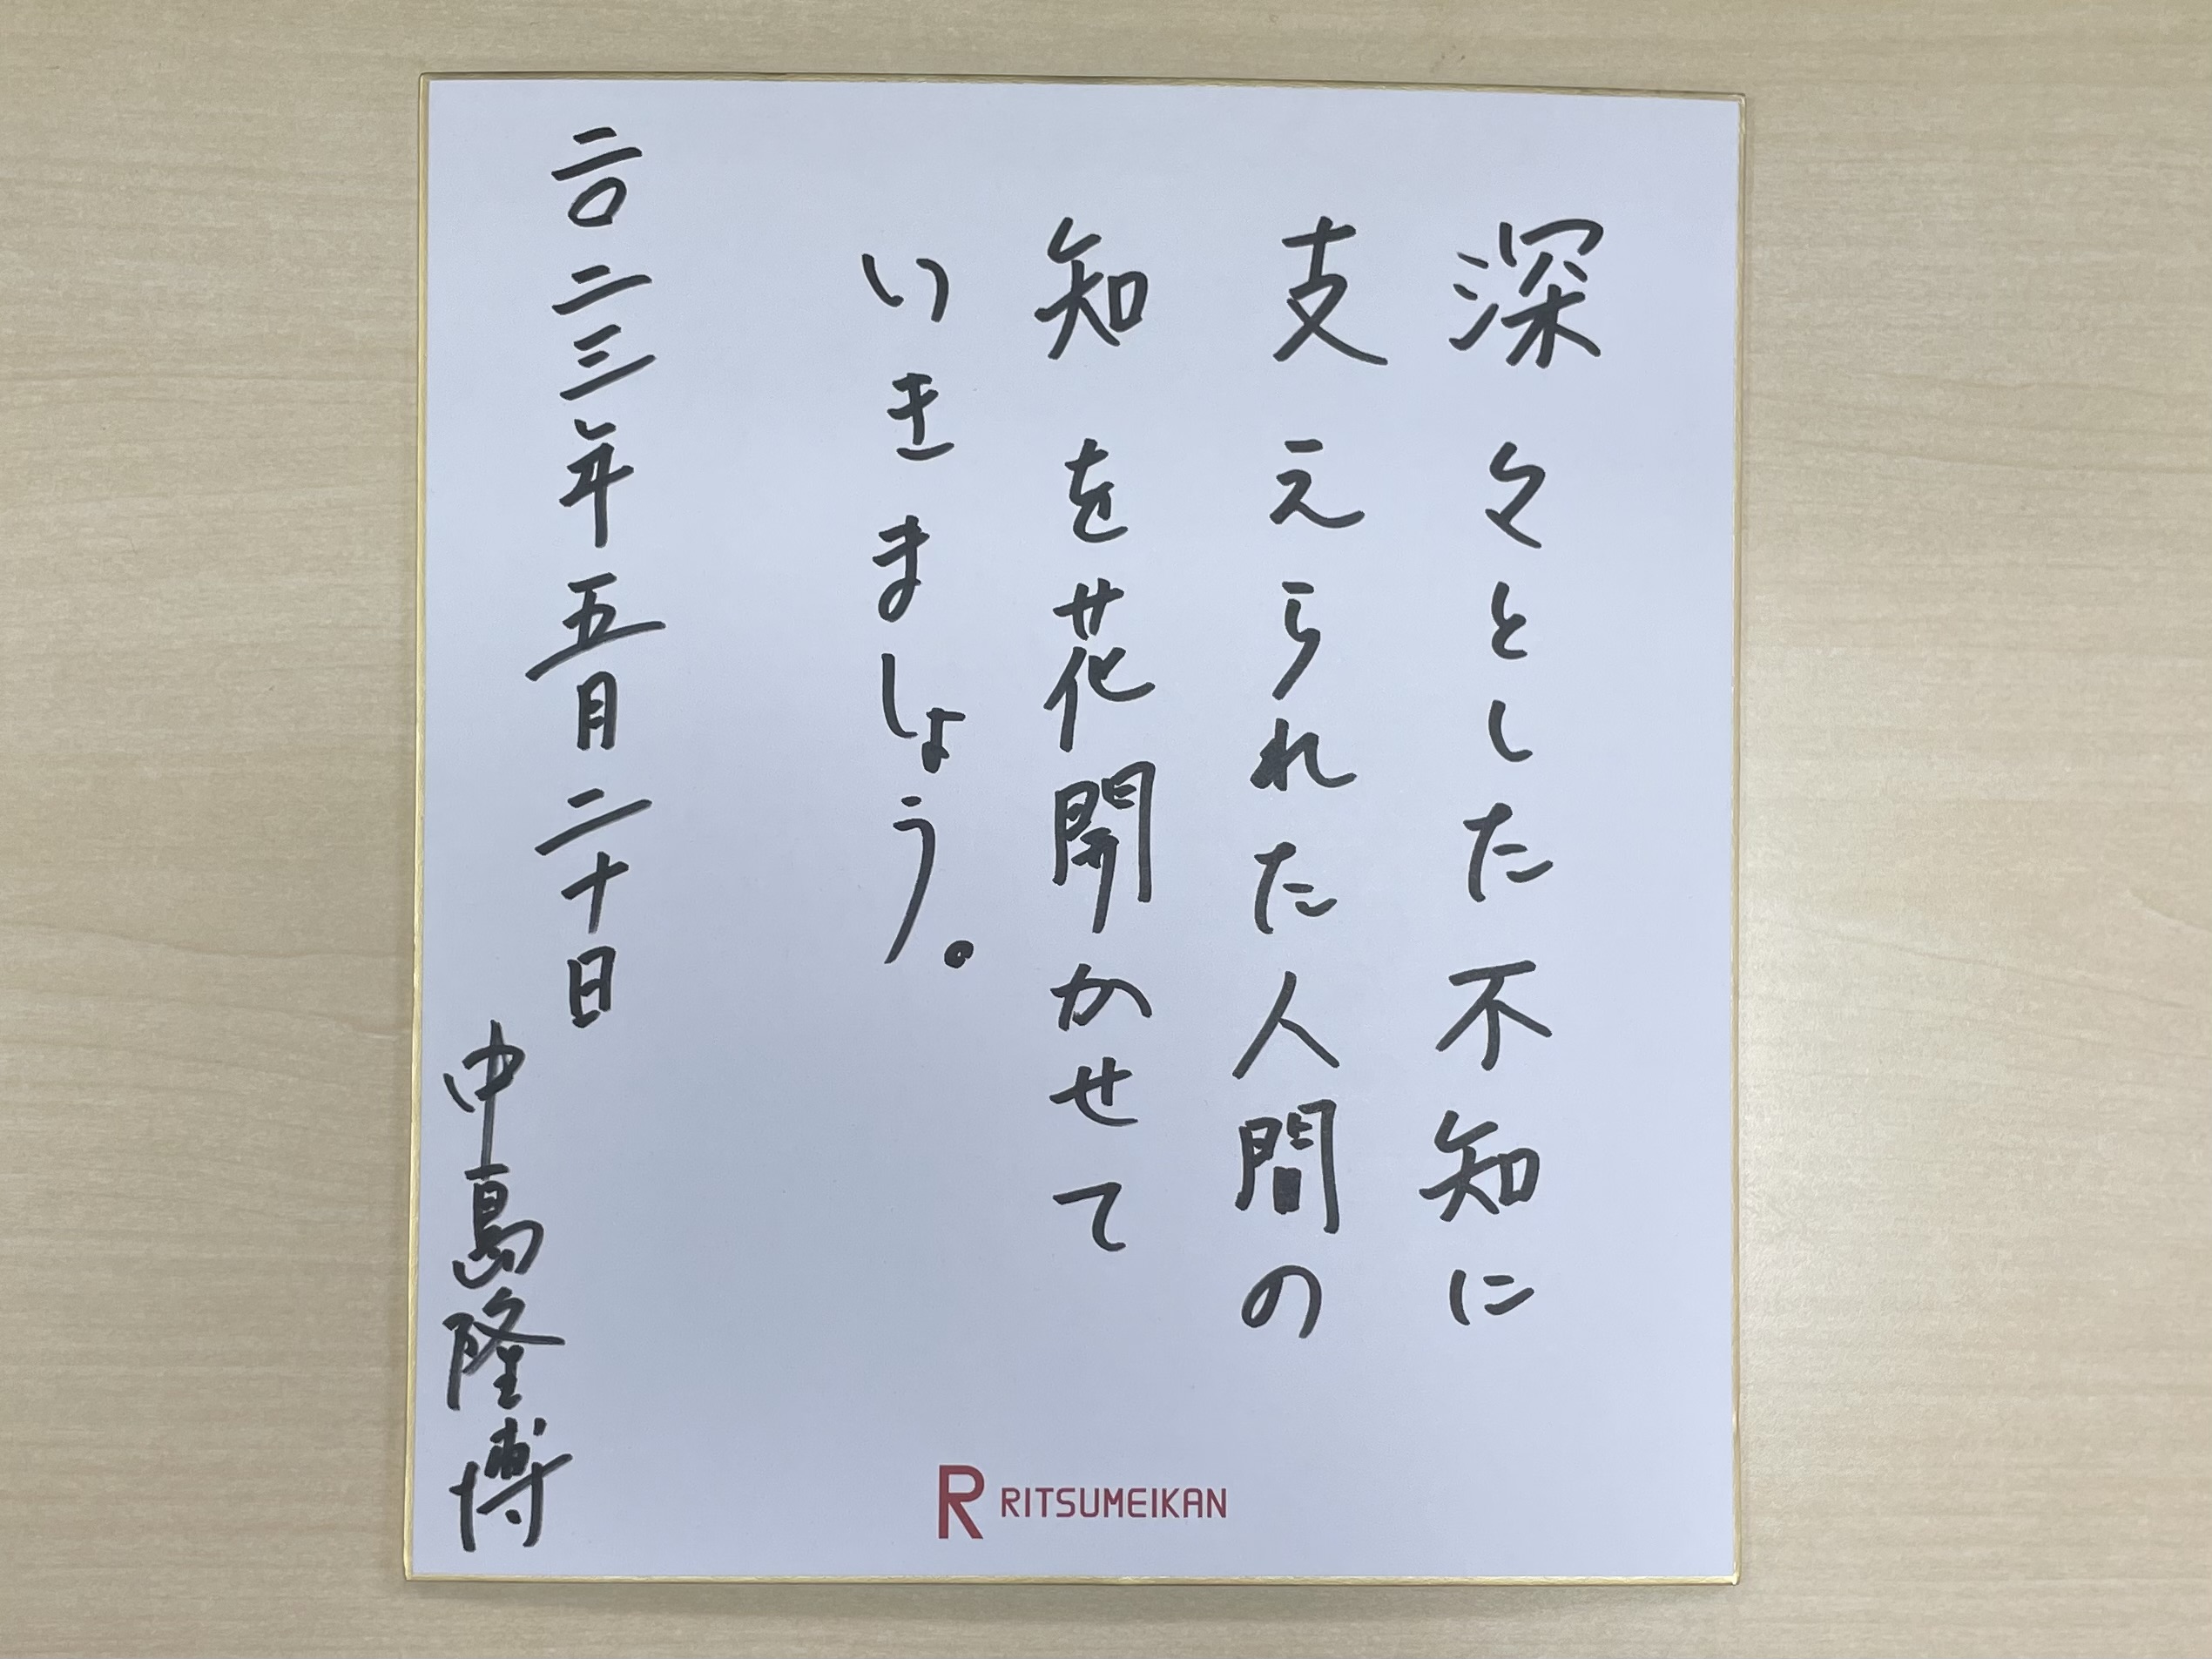 深々とした不知に
支えられた人間の
知を花開かせて
いきましょう。
二〇二三年五月二十日
中島隆博
R RITSUMEIKAN